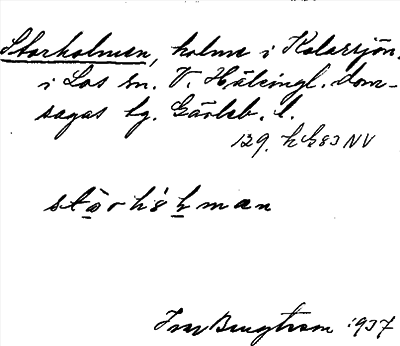 Storholmen, holme i Kolarsjön,
i Los sn. V. Hälsingl. dom-
sagas tg. Gävleb. l.
129. h h 83 NV
stòrhòlman
Ivar Bengtsson 1937